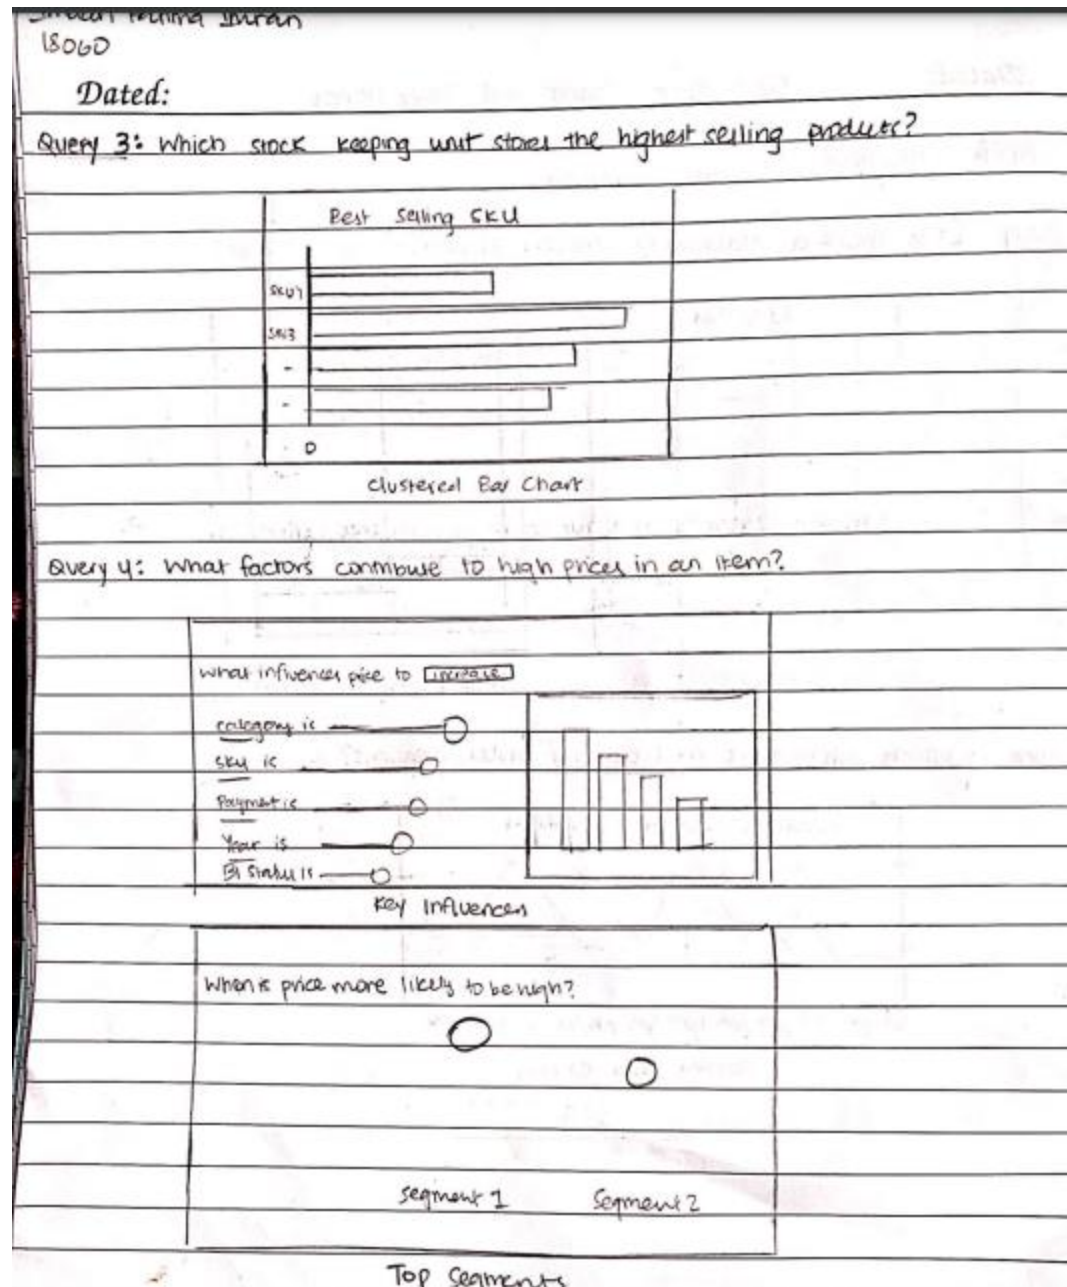 Imran
18060
Dated:
Query 3: Which stock keeping unit stores the highest selling products?
Best Selling SKU
SKU1
SKU3
-
-
0
Clustered Bar Chart
Query 4: What factors contribute to high prices in an item?
What influences price to increase
category is
SKU is
Payment is
Year is
BI Status is
Key Influencers
When is price more likely to be high?
Segment 1 Segment 2
Top Segments